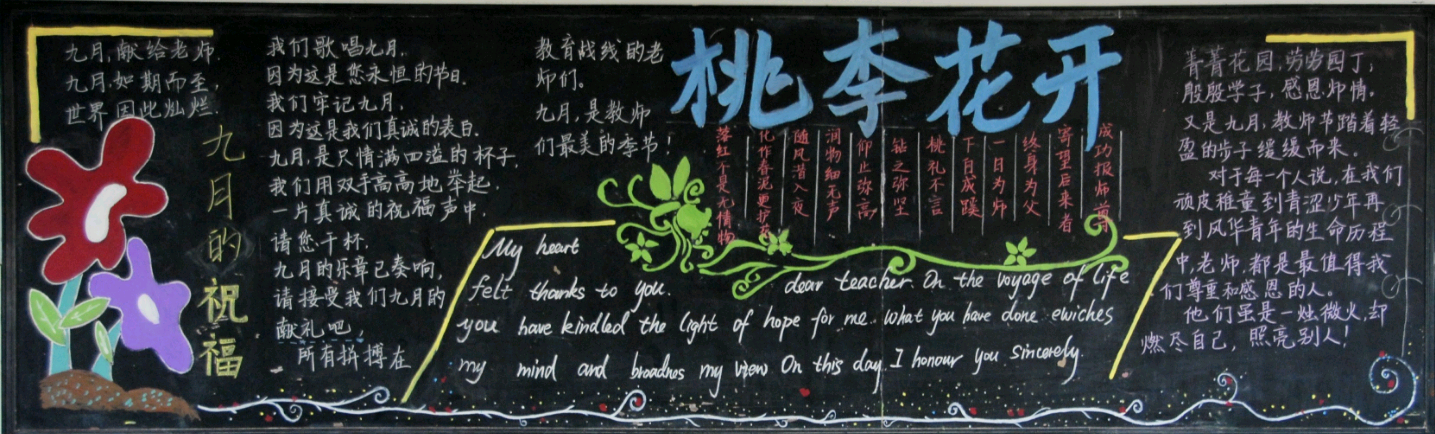 九月,献给老师.
九月如期而至,
世界因此灿烂.
九月的祝福
我们歌唱九月.
因为这是您永恒的节日.
我们牢记九月.
因为这是我们真诚的表白.
九月,是只情满四溢的杯子,
我们用双手高高地举起.
一片真诚的祝福声中.
请您干杯.
九月的乐章已奏响,
请接受我们九月的
献礼吧.
所有拼搏在
教育战线的老
师们.
九月,是教师
们最美的季节!
桃李花开
落红不是无情物
化作春泥更护花
随风昔入夜
润物细无声
仰止弥高
钻之弥坚
桃礼不言
下日成蹊
一日为师
终身为父
寄望后来者
成功报师尊
My heart
felt thanks to you. dear teacher. On the voyage of life
you have kindled the light of hope for me. What you have done ewiches
my mind and broadnes my view On this day I honour you sincerely.
菁菁花园,劳劳园丁;
殷殷学子,感恩师情。
又是九月,教师节踏着轻
盈的步子缓缓而来。
对于每一个人说,在我们
顽皮稚童到青涩少年再
到风华青年的生命历程
中,老师,都是最值得我
们尊重和感恩的人。
他们虽是一烛微火,却
燃尽自己,照亮别人!